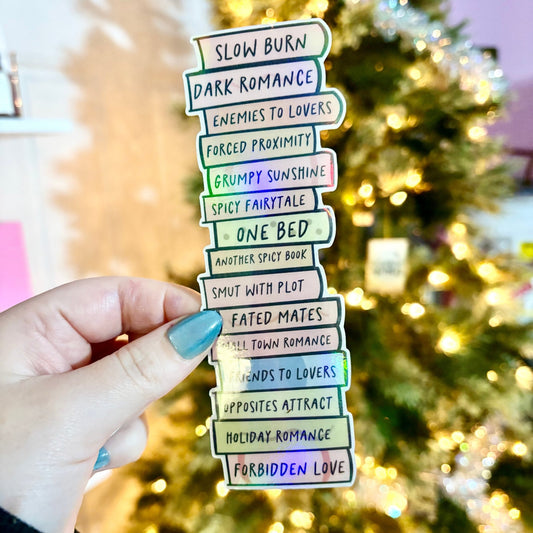 SLOW BURN
DARK ROMANCE
ENEMIES TO LOVERS
FORCED PROXIMITY
GRUMPY SUNSHINE
SPICY FAIRYTALE
ONE BED
ANOTHER SPICY BOOK
SMUT WITH PLOT
FATED MATES
TOWN ROMANCE
TO LOVERS
OPPOSITES ATTRACT
HOLIDAY ROMANCE
FORBIDDEN LOVE